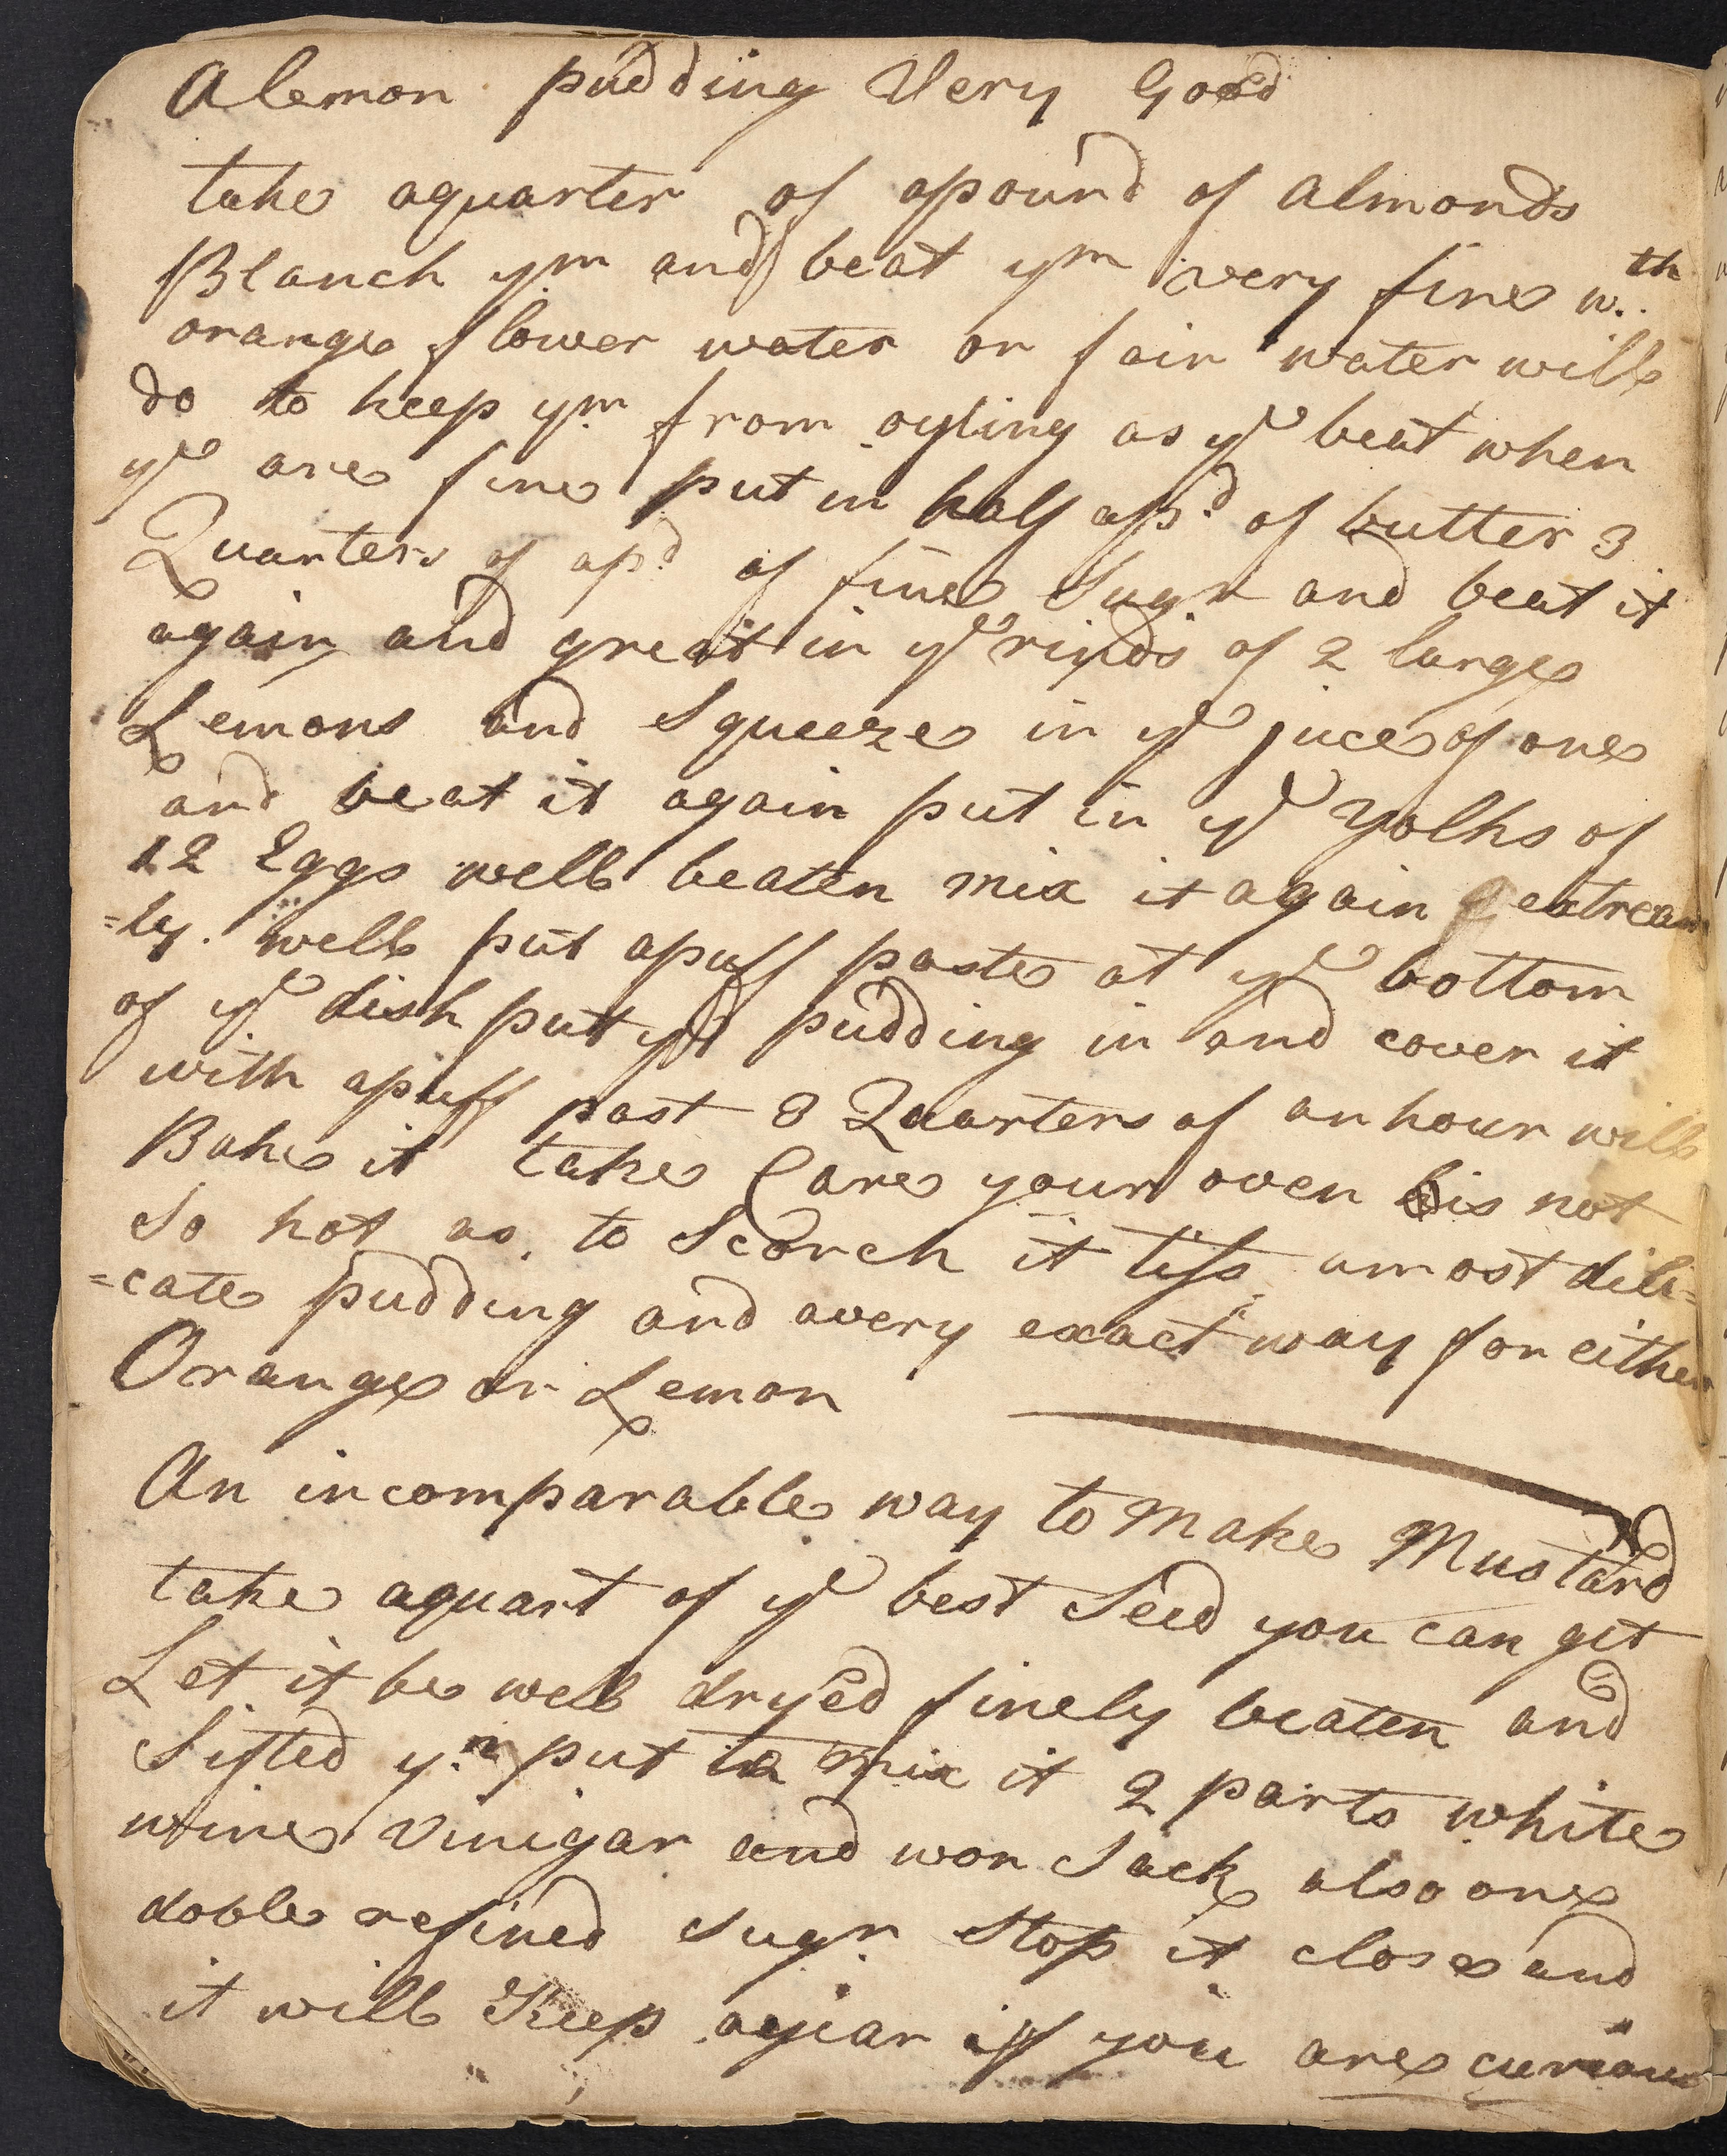 A lemon pudding Very Good
take aquarter of apound of almonds
Blanch ym and beat ym very fine w.th
orange flower water or fair water will
do to keep ym from oyling as ye beat when
ye are fine put in half a p.d of butter 3
Quarters of a p.d of fine Sugr and beat it
again and great in ye rinds of 2 large
Lemons and Squeeze in ye juce of one
and beat it again put in ye Yolks of
12 Eggs well beaten mix it again extream
=ly. well put apuff paste at ye bottom
of ye dish put yd pudding in and cover it
with apuff past 3 Quarters of an hour will
Bake it take Care your oven is not
So hot as to Scorch it tiss amost dili=
=cate pudding and avery exact way for either
Orange or Lemon
An incomparable way to Make Mustard
take aquart of ye best Seed you can get
Let it be well dryed finely beaten and
Sifted yn put to mix it 2 parts white
wine Vinigar and won Sack also one
doble refined sugr Stop it close and
it will Keep ayear if you are curious